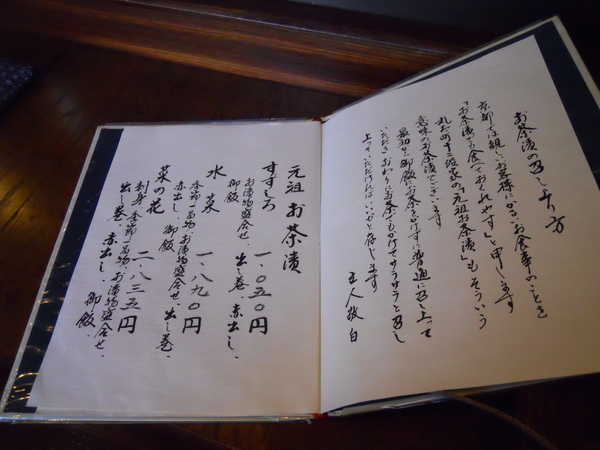 お茶漬の召し上り方
京都では親しいお客様にかるいお食事のことを
「お茶漬でも食べておくれやす」と申します
丸太町十二段家の「元祖お茶漬」もそういう
意味のお茶漬でございます
最初は御飯にお茶をかけずに普通に召し上って
いただきおかわりにお茶でもかけてサラサラと召し
上っていただければいいかと存じます
主人敬白
元祖 お茶漬
すずしろ 一、〇五〇円
お漬物盛合せ、出し巻、赤出し、
御飯
水菜 一、八九〇円
季節一品物、お漬物盛合せ、出し巻、
赤出し、御飯
菜の花 二、八三五円
刺身、季節一品物、お漬物盛合せ、
出し巻、赤出し、御飯、